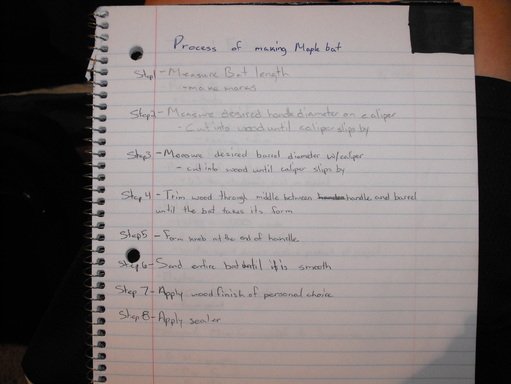 Process of making Maple bat
Step1-Measure Bat length
-make marks
Step2-Measure desired handle diameter on caliper
- Cut into wood until caliper slips by
Step3-Measure desired barrel diameter w/caliper
- cut into wood until caliper slips by
Step 4-Trim wood through middle between handle and barrel
until the bat takes its form
Step5 - Form knob at the end of handle
Step 6-Sand entire bat until it is smooth
Step 7-Apply wood finish of personal choice
Step 8-Apply sealer